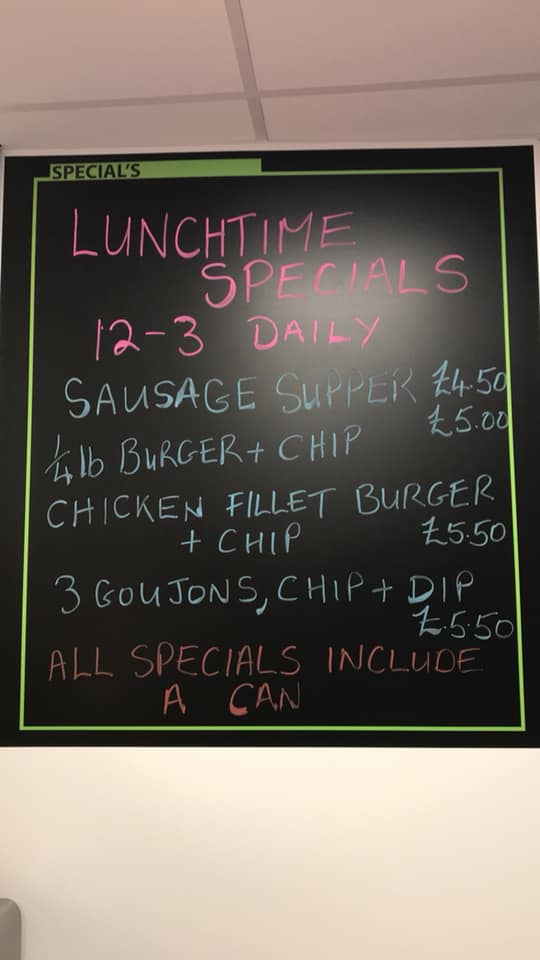 SPECIAL'S
LUNCHTIME
SPECIALS
12-3 DAILY
SAUSAGE SUPPER £4.50
¼ lb BURGER + CHIP £5.00
CHICKEN FILLET BURGER
+ CHIP £5.50
3 GOUJONS, CHIP + DIP
£5.50
ALL SPECIALS INCLUDE
A CAN